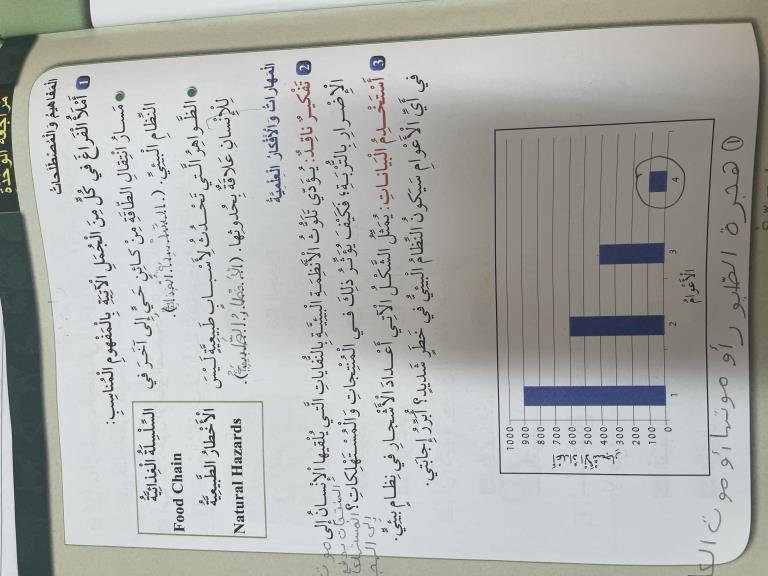 مراجعة الوحدة
المفاهيم والمصطلحات
1 أملأ الفراغ في كل من الجمل الآتية بالمفهوم المناسب:
السلسلة الغذائية
Food Chain
الأخطار الطبيعية
Natural Hazards
• مسار انتقال الطاقة من كائن حي إلى آخر في
النظام البيئي. (السلسلة الغذائية).
• الظواهر التي تحدث لأسباب طبيعية ليس
للإنسان علاقة بحدوثها. (الأخطار الطبيعية).
المهارات والأفكار العلمية
2 تفكير ناقد: يؤدي تلوث الأنظمة البيئية بالنفايات التي يلقيها الإنسان إلى
الإضرار بالتربة؛ فكيف يؤثر ذلك في المنتجات والمستهلكات؟
3 أستخدم البيانات: يمثل الشكل الآتي أعداد الأشجار في نظام بيئي.
في أي الأعوام سيكون النظام البيئي في خطر شديد؟ أبرر إجابتي.
1000
900
800
700
600
500
400
300
200
100
0
1 2 3 4
الأعوام
① هجرة الطيور أو موتها أو موت